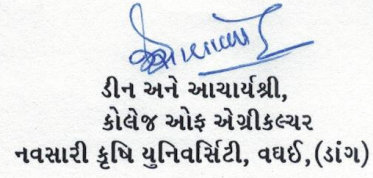 ડીન અને આચાર્યશ્રી,
કોલેજ ઓફ એગ્રીકલ્ચર
નવસારી કૃષિ યુનિવર્સિટી, વઘઈ,(ડાંગ)